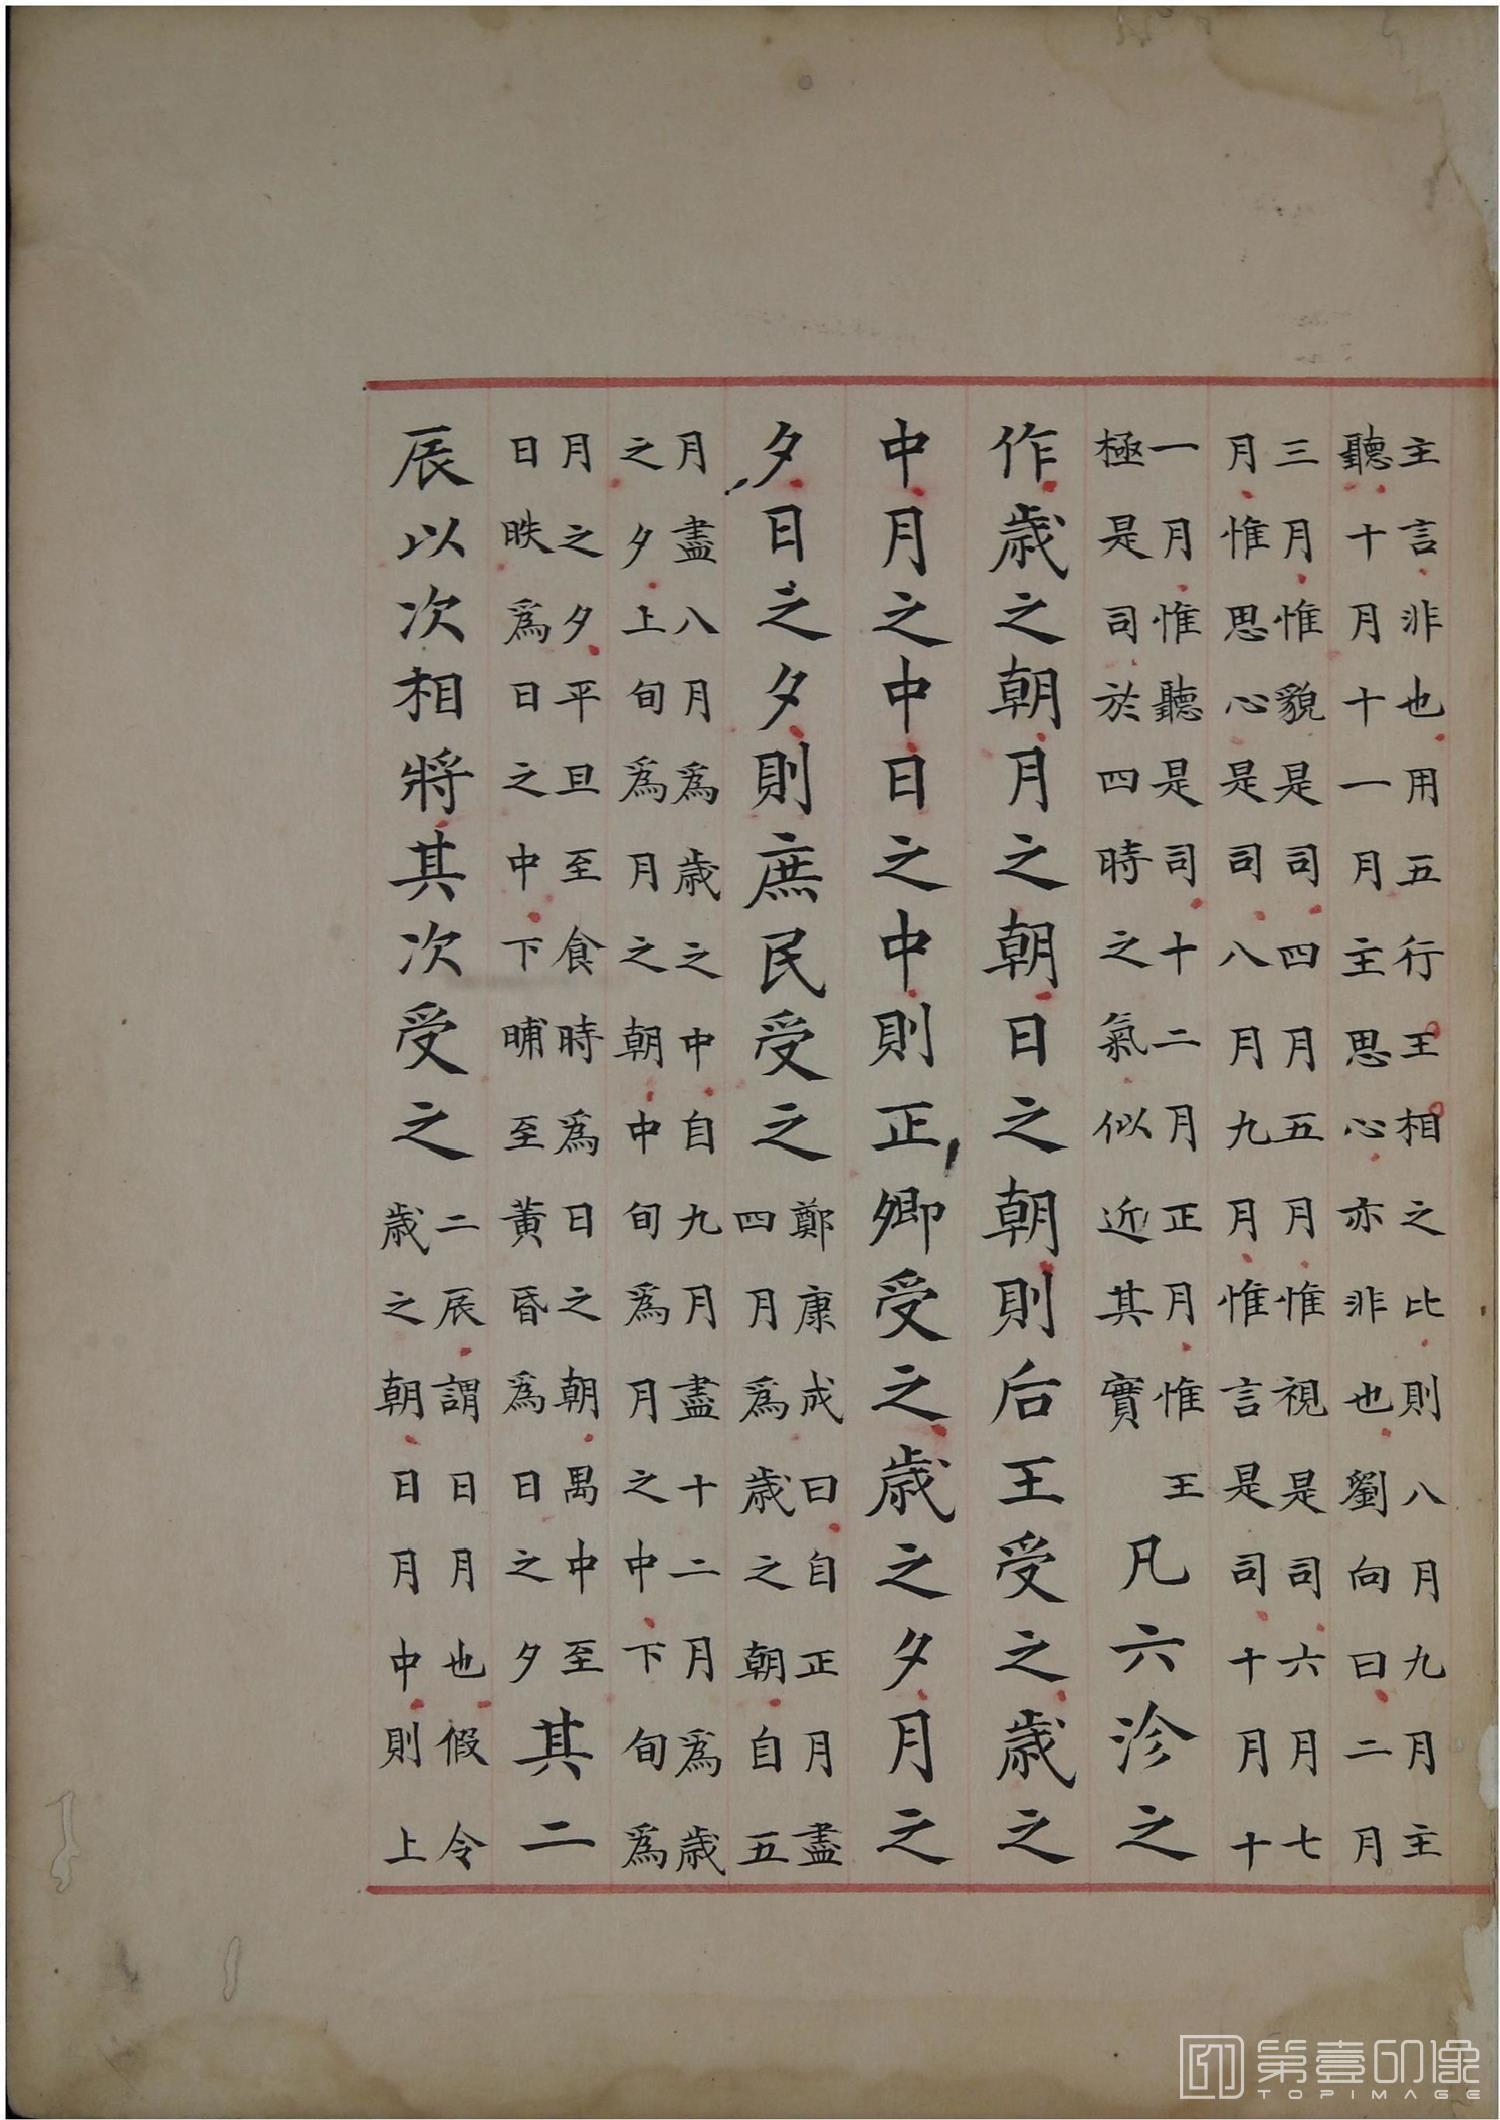 主言非也用五行王相之比則八月九月主
聽十月十一月主思心亦非也劉向曰二月
三月惟貌是司四月五月惟視是司六月七
月惟思心是司八月九月惟言是司十月十
一月惟聽是司十二月正月惟王
極是司於四時之氣似近其實
凡六沴之
作歲之朝月之朝日之朝則后王受之歲之
中月之中日之中則正卿受之歲之夕月之
夕日之夕則庶民受之
鄭康成曰自正月盡
四月為歲之朝自五
月盡八月為歲之中自九月盡十二月為歲
之夕上旬為月之朝中旬為月之中下旬為
月之夕平旦至食時為日之朝禺中至
日昳為日之中下晡至黃昏為日之夕
其二
辰以次相將其次受之
二辰謂日月也假令
歲之朝日月中則上
第壹印像
TOPIMAGE